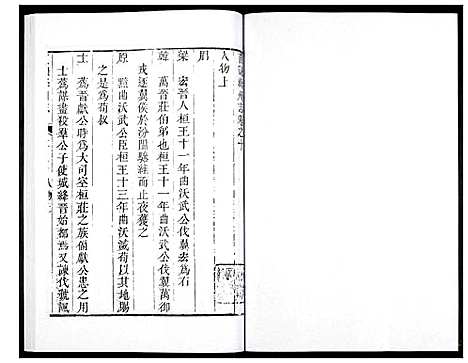 直隸絳州志卷之十
人物上
周
梁 宏晉人桓王十一年曲沃武公伐翼宏爲右
韓 萬晉莊伯弟也桓王十一年曲沃武公伐翼萬御
戎逐翼侯於汾隰驂絓而止夜獲之
原 黯曲沃武公臣桓王十三年曲沃滅荀以其地賜
之是爲荀叔
士 蒍晉獻公時爲大司空桓莊之族偪獻公患之用
士蒍謀盡殺羣公子使城絳晉始都焉又諫伐虢